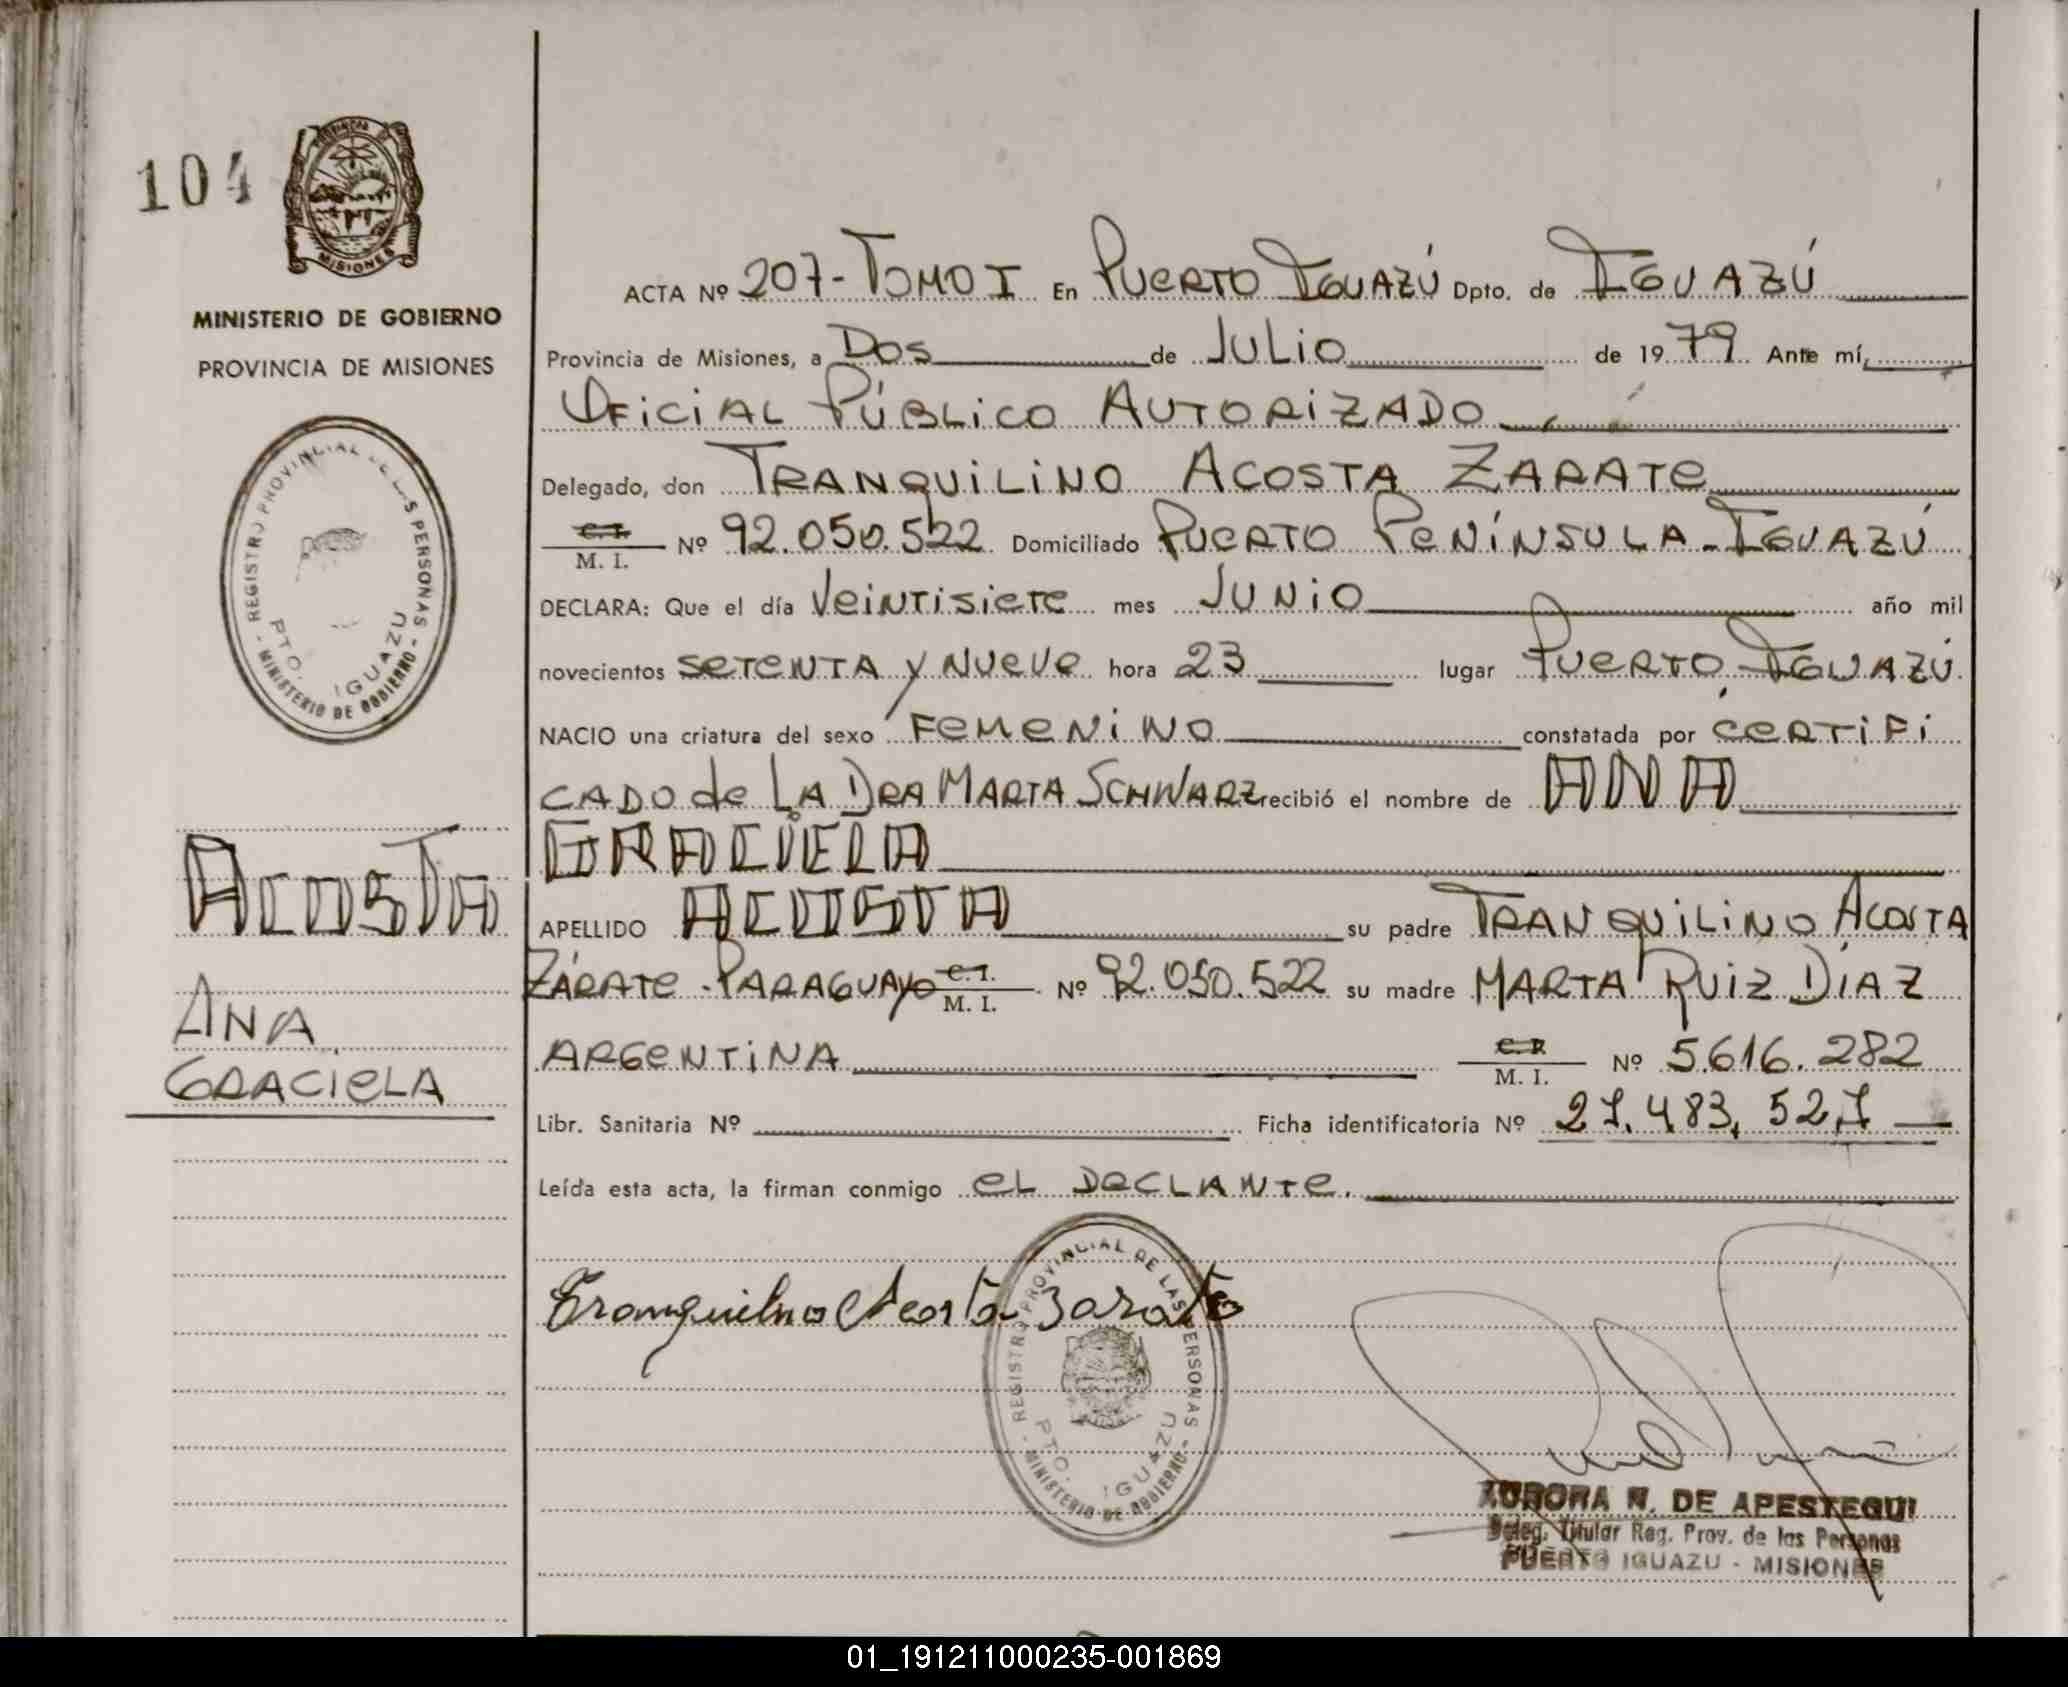 104
MISIONES
MINISTERIO DE GOBIERNO
PROVINCIA DE MISIONES
REGISTRO PROVINCIAL DE LAS PERSONAS
PTO. IGUAZU
- MINISTERIO DE GOBIERNO -
ACOSTA
ANA
GRACIELA
ACTA Nº 207-TOMO I En PUERTO IGUAZÚ Dpto. de IGUAZÚ
Provincia de Misiones, a DOS de JULIO de 1979 Ante mí,
OFICIAL PÚBLICO AUTORIZADO
Delegado, don TRANQUILINO ACOSTA ZARATE
C.I. M. I. Nº 92.050.522 Domiciliado PUERTO PENÍNSULA-IGUAZÚ
DECLARA: Que el día VEINTISIETE mes JUNIO año mil
novecientos SETENTA Y NUEVE hora 23 lugar PUERTO IGUAZÚ
NACIO una criatura del sexo FEMENINO constatada por CERTIFI
CADO de LA DRA MARTA SCHWARZ recibió el nombre de ANA
GRACIELA
APELLIDO ACOSTA su padre TRANQUILINO ACOSTA
ZÁRATE - PARAGUAYO C.I. M. I. Nº 92.050.522 su madre MARTA RUIZ DÍAZ
ARGENTINA M. I. Nº 5.616.282
Libr. Sanitaria Nº Ficha identificatoria Nº 27.483.527
Leída esta acta, la firman conmigo EL DECLANTE.
Tranquilino Acosta Zarate
REGISTRO PROVINCIAL DE LAS PERSONAS
PTO. IGUAZU
- MINISTERIO DE GOBIERNO -
AURORA N. DE APESTEGUI
Deleg. Titular Reg. Prov. de las Personas
PUERTO IGUAZU - MISIONES
01_191211000235-001869